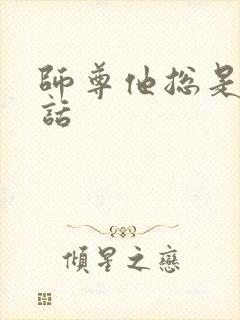 師尊他總是
話
傾星之戀